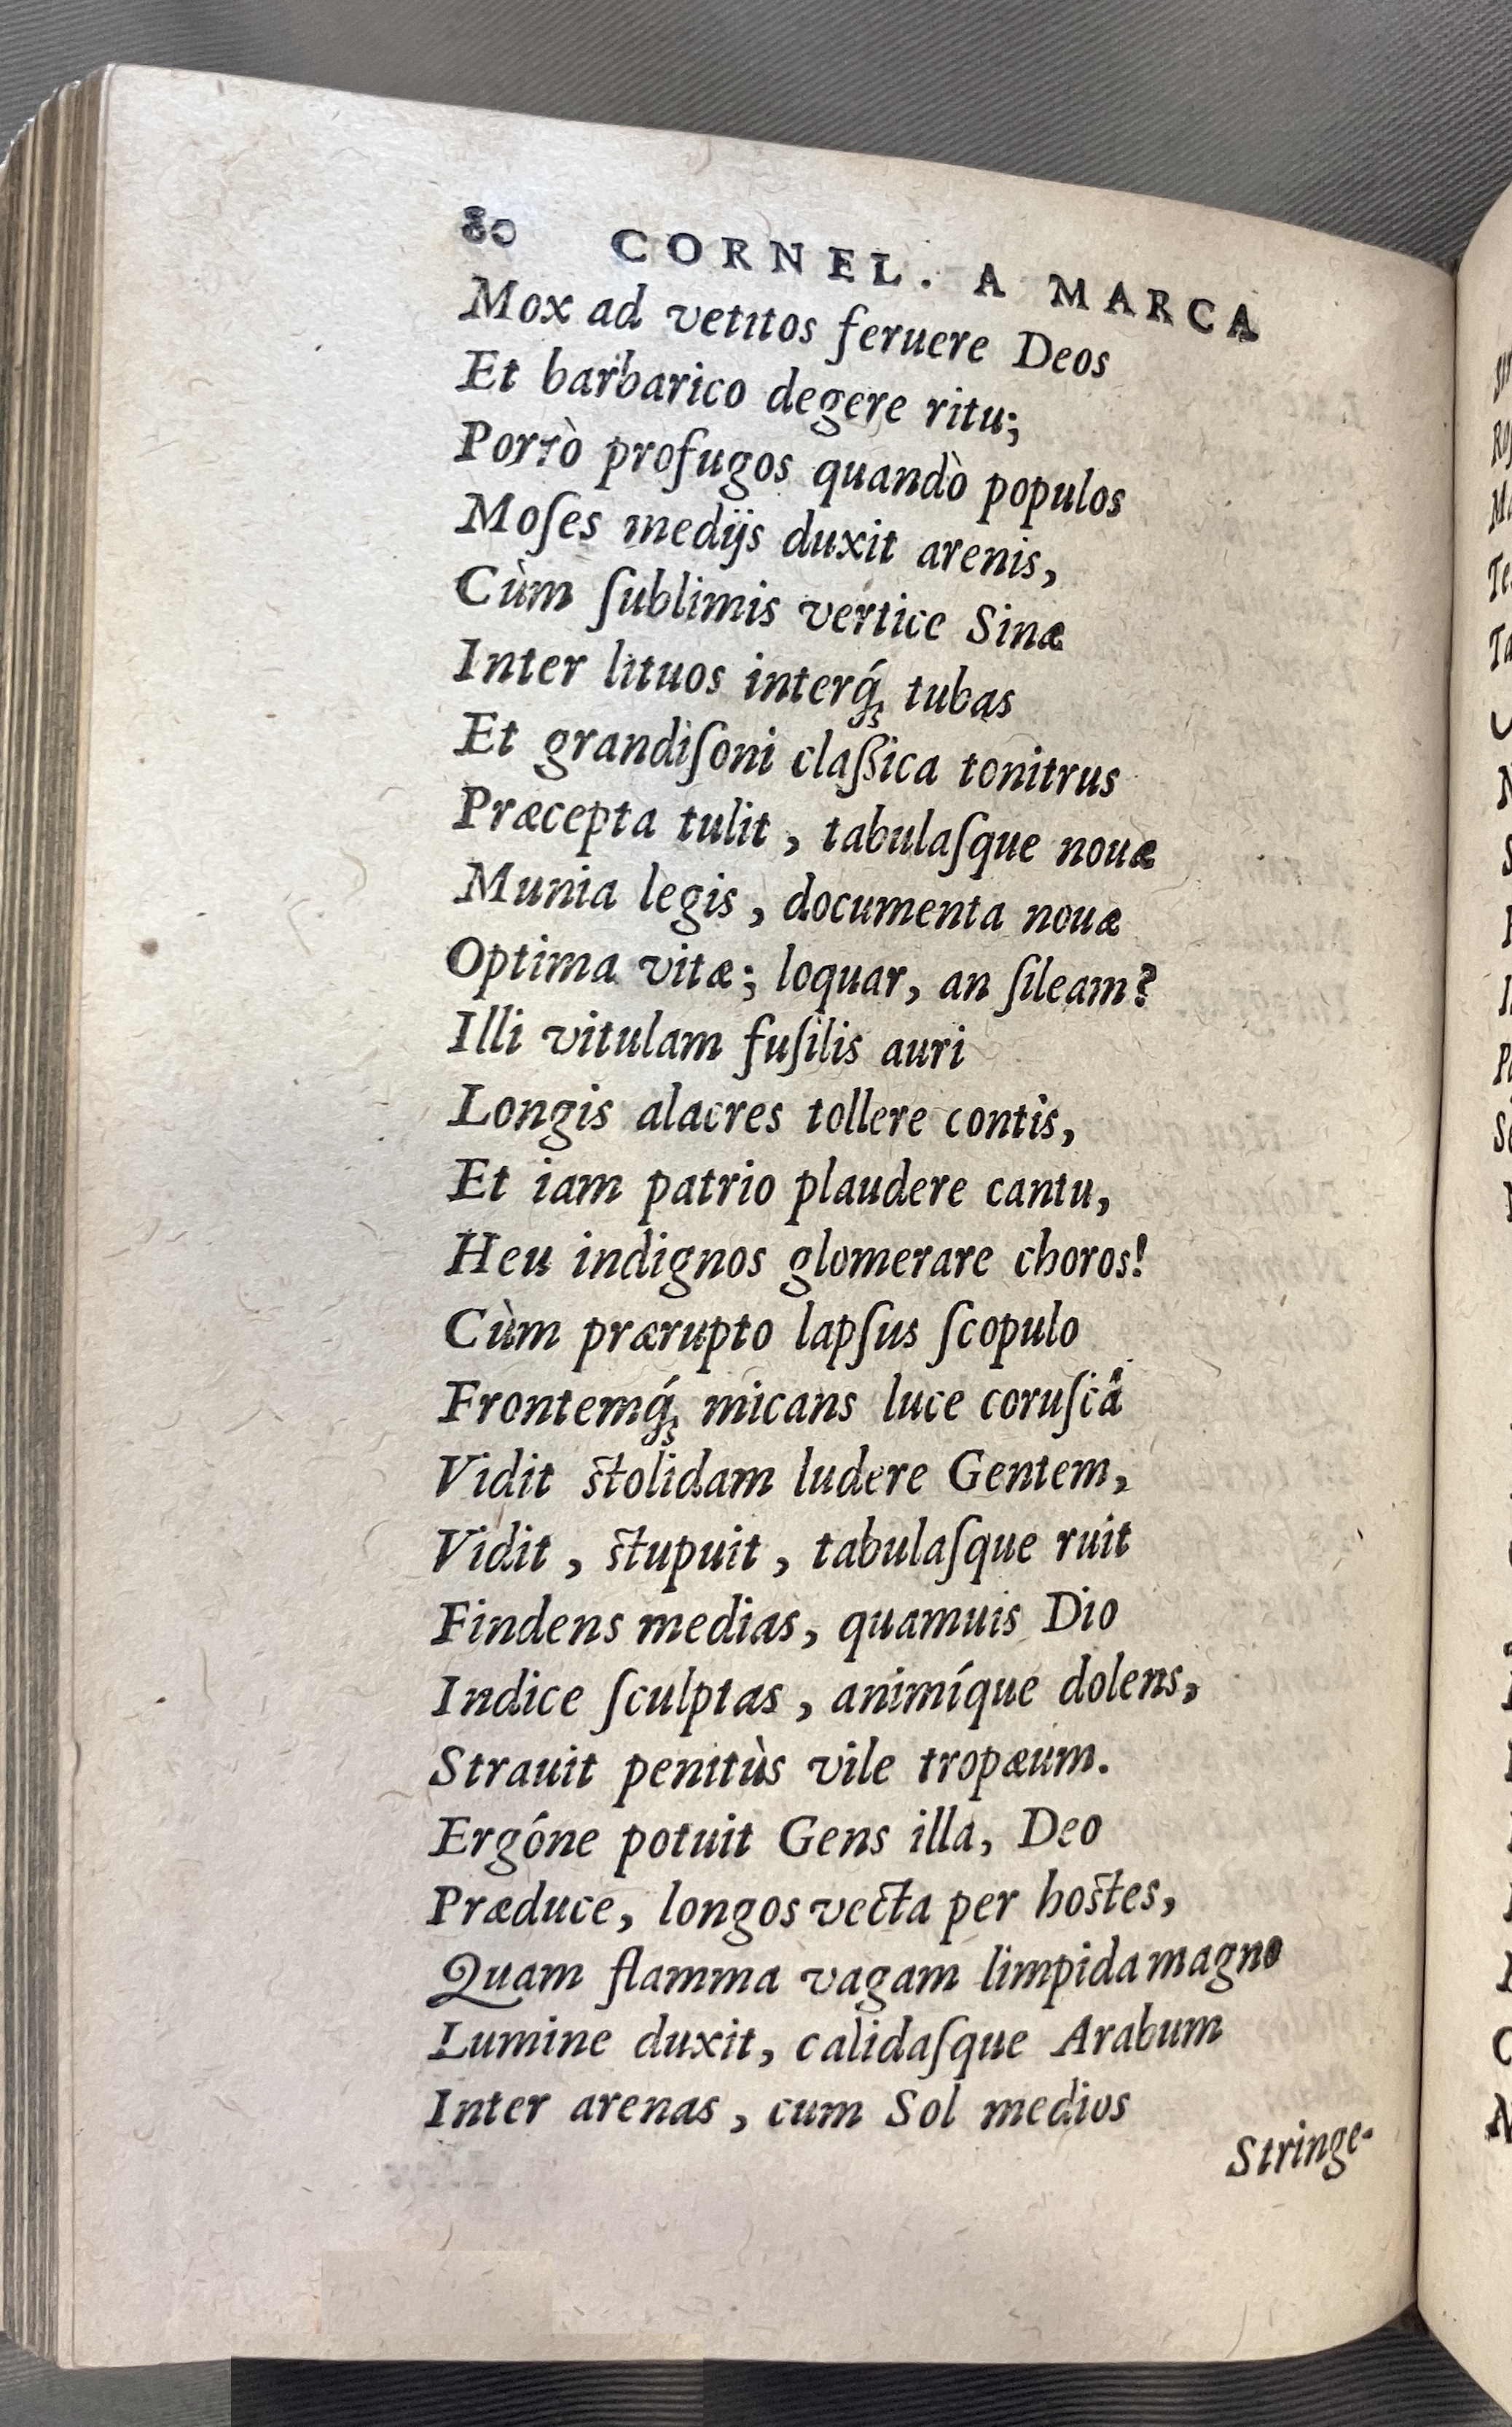 80 CORNEL. A MARCA
Mox ad vetitos feruere Deos
Et barbarico degere ritu;
Porrò profugos quandò populos
Moſes medijs duxit arenis,
Cùm ſublimis vertice Sinæ
Inter lituos interq́; tubas
Et grandiſoni claßica tonitrus
Præcepta tulit, tabulaſque nouæ
Munia legis, documenta nouæ
Optima vitæ; loquar, an ſileam?
Illi vitulam fuſilis auri
Longis alacres tollere contis,
Et iam patrio plaudere cantu,
Heu indignos glomerare choros!
Cùm prærupto lapſus ſcopulo
Frontemq́; micans luce coruſcâ
Vidit ſtolidam ludere Gentem,
Vidit, ſtupuit, tabulaſque ruit
Findens medias, quamuis Dio
Indice ſculptas, animíque dolens,
Strauit penitùs vile tropæum.
Ergóne potuit Gens illa, Deo
Præduce, longos vecta per hoſtes,
Quam flamma vagam limpida magno
Lumine duxit, calidaſque Arabum
Inter arenas, cum Sol medios
Stringe-